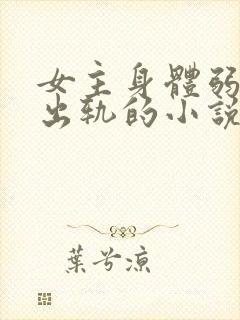 女主身體弱
出轨的小說
葉兮涼